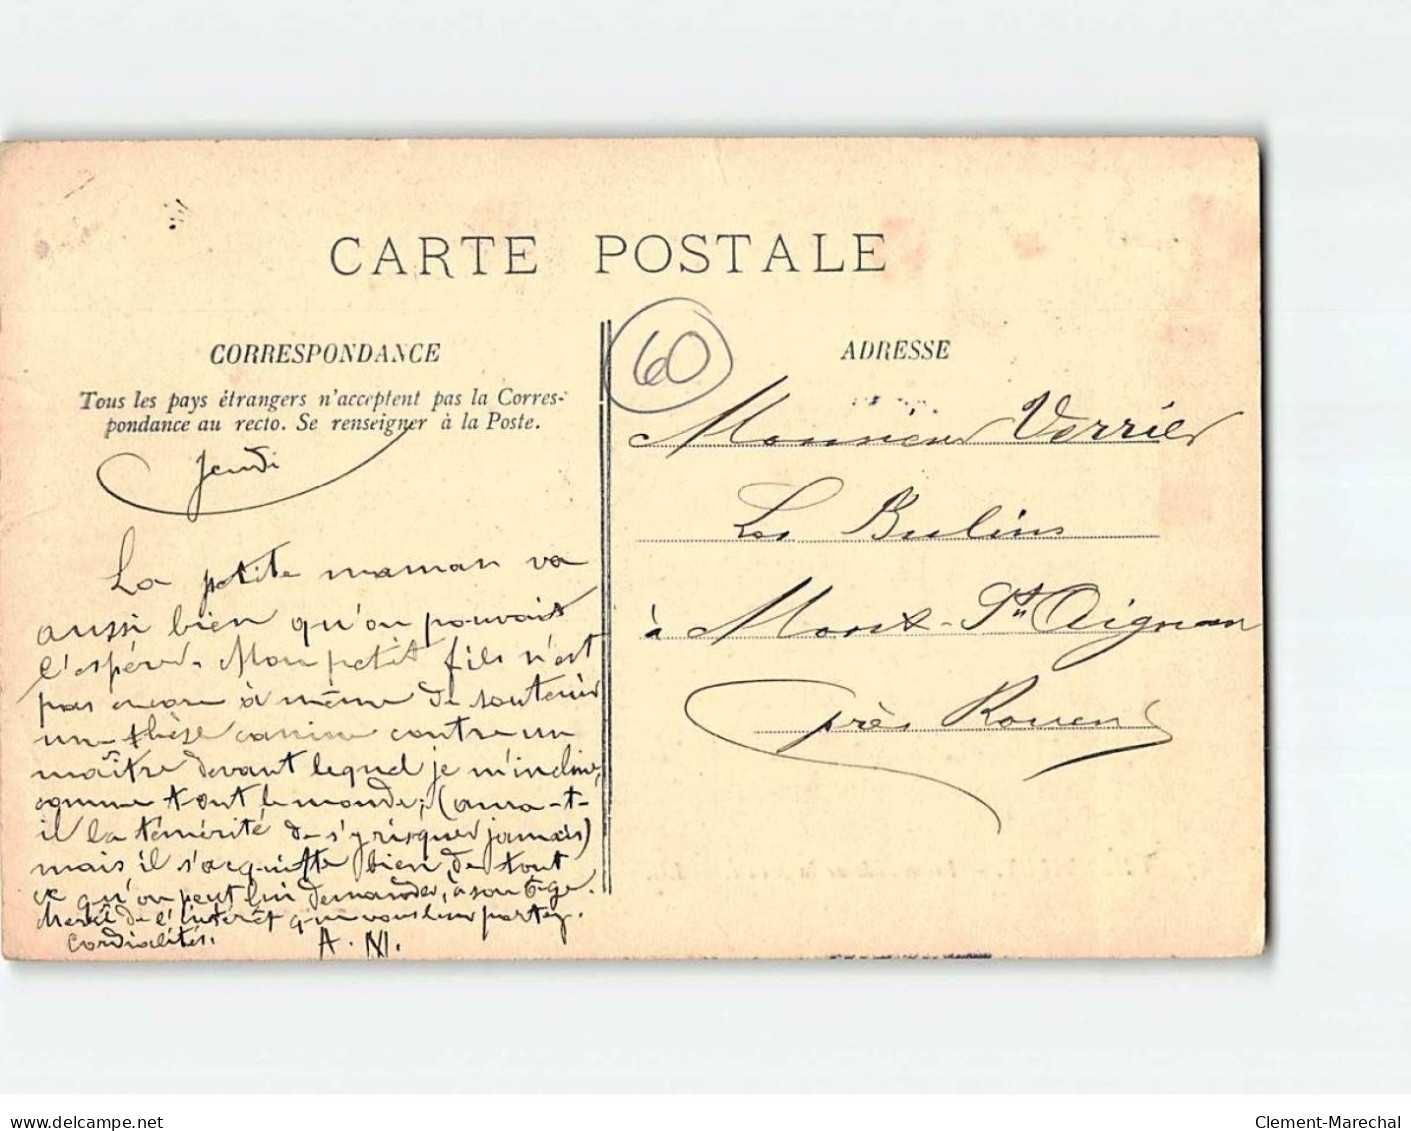 CARTE POSTALE
CORRESPONDANCE
Tous les pays étrangers n'acceptent pas la Corres-
pondance au recto. Se renseigner à la Poste.
Jeudi
La petite maman va
aussi bien qu'on pouvait
l'espérer. Mon petit fils n'est
pas encore à même de soutenir
une thèse canine contre un
maître devant lequel je m'incline,
comme tout le monde; (aura-t-
il la témérité de s'y risquer jamais)
mais il s'acquitte bien de tout
ce qu'on peut lui demander, à son âge.
Merci de l'intérêt que vous leur portez.
Cordialités.
A. N.
60
ADRESSE
Monsieur Verrier
Les Bulins
à Mont-St Aignan
près Rouen
delcampe.net
Clement-Marechal